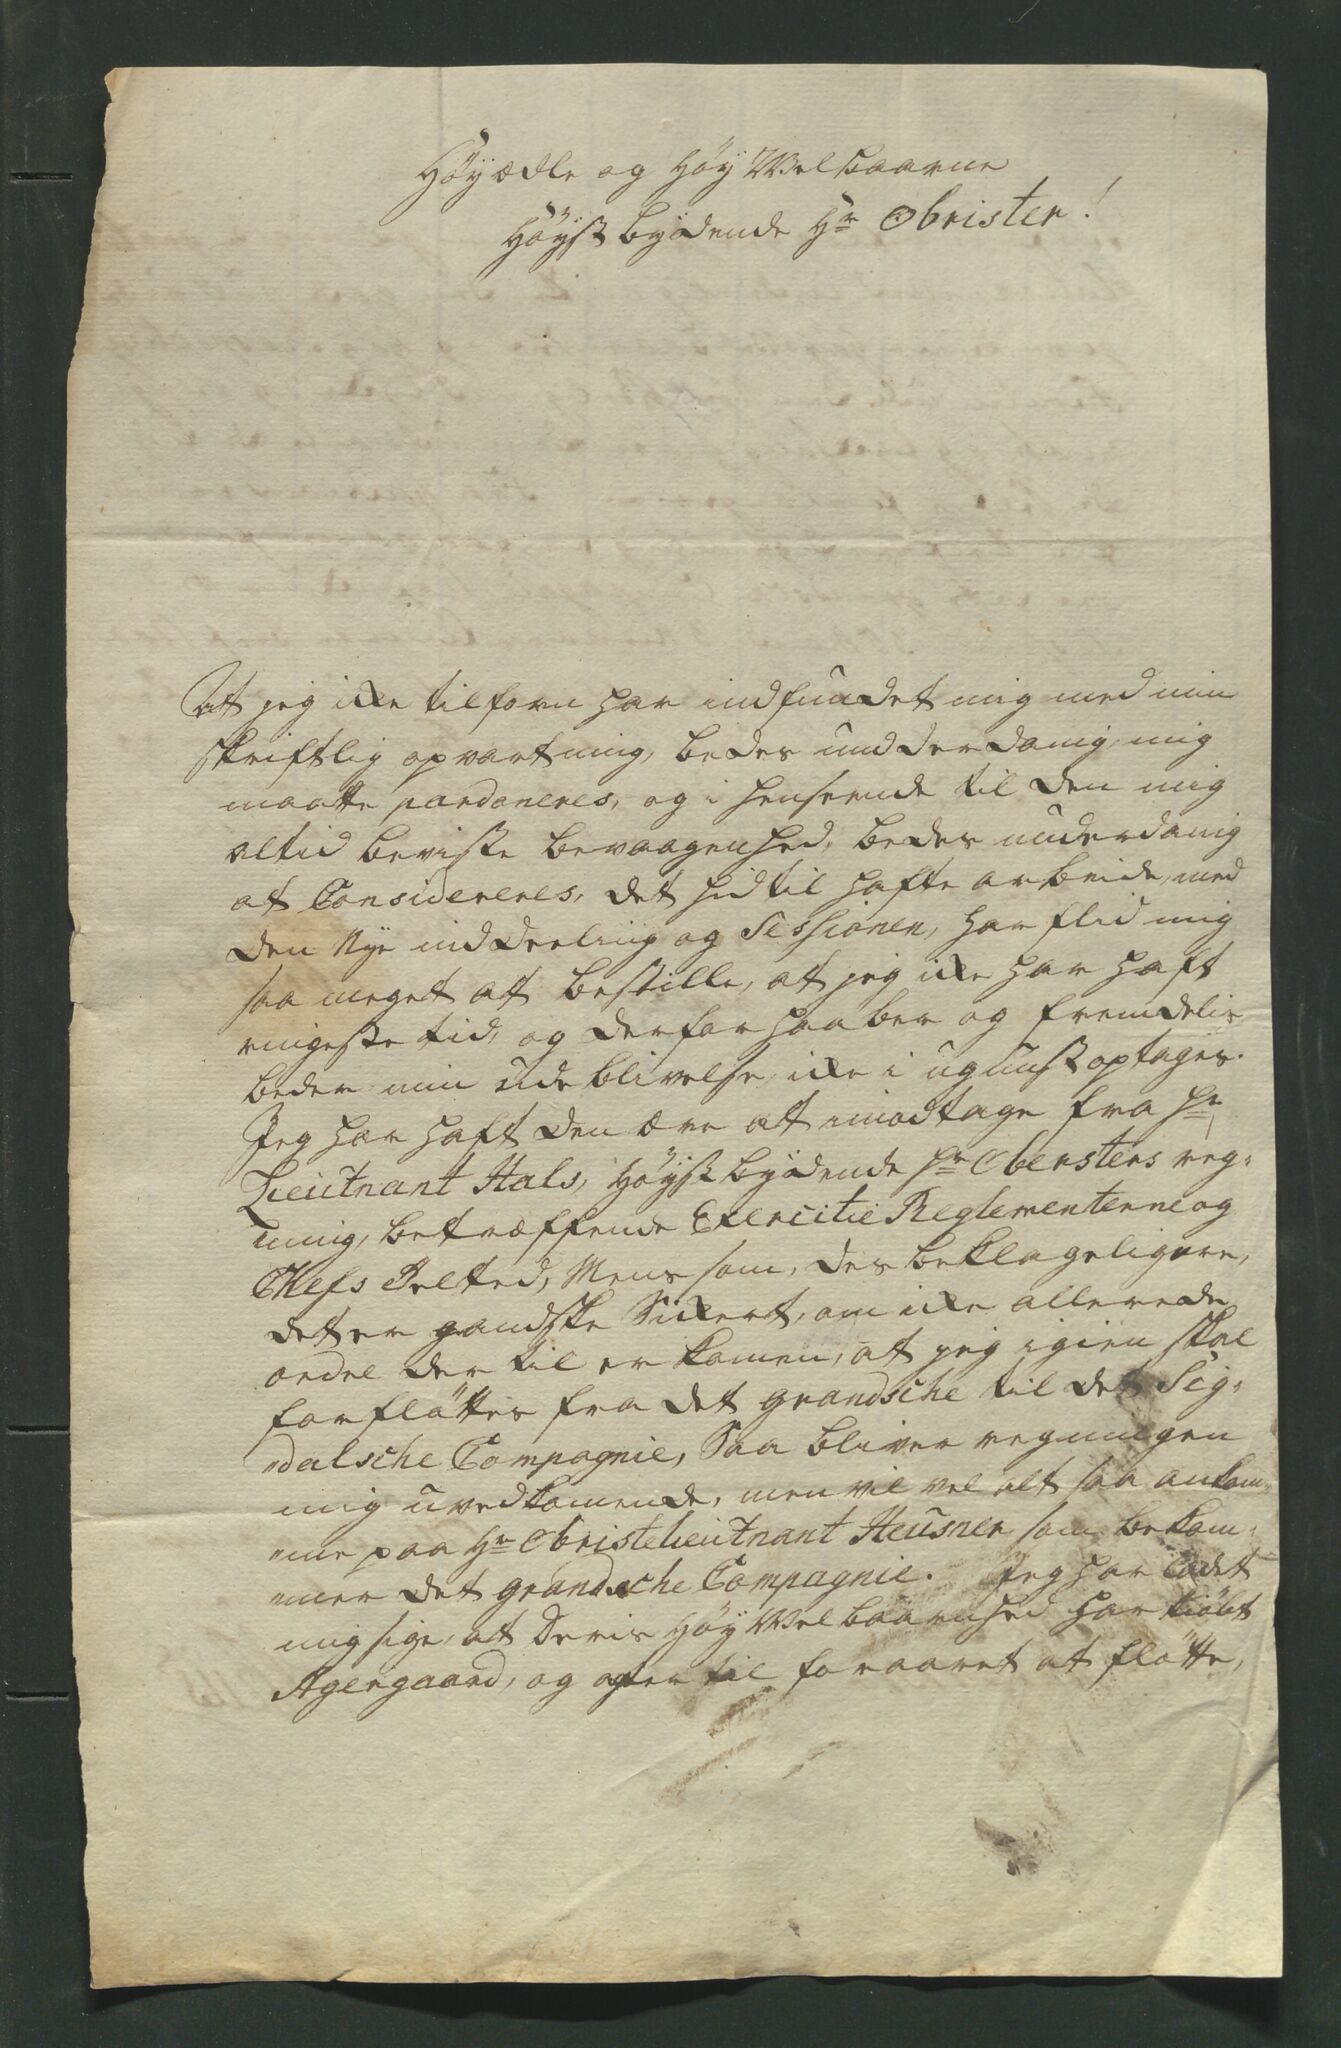 Höyædle og Höy Welbaarne
Höystbydende Hr Obrister!
At jeg ikke tilforn har indfundet mig med min
skriftlig opvartning, bedes undderdanig mig
maatte pardoneres, og i henseende til den mig
altid beviste bevaagenhed, bedes underdanig
at Considereres, det hidtil hafte arbeide, med
den Nye inddeeling og Sessionen, har flid mig
saa meget at bestille, at jeg ikke har haft
ringeste tid, og derfor haaber og fremdelis
beder min udeblivelse ikke i ugunst optages.
Jeg har haft den ære at imodtage fra Hr
Lieutnant Hals, Höystbydende Hr Obersters reg-
ning, betræffende Exercitie Reglementerne og
Chefs Telted, Mens som, des beklageligere,
det er gandske Sikkert, om ikke allerede
ordre der til er komen, at jeg igien skal
forflöttes fra det grandsche til det Sig-
dalsche Compagnie, Saa bliver regningen
mig uvedkomende, men vil vel alt saa ankom-
me paa Hr Obristelieutnant Heusner som bekom-
mer det grandsche Compagnie. Jeg har ladet
mig sige, at Deris Höy Welbaarenhed har kiöbt
Agergaard, og agter til foraaret at flötte,